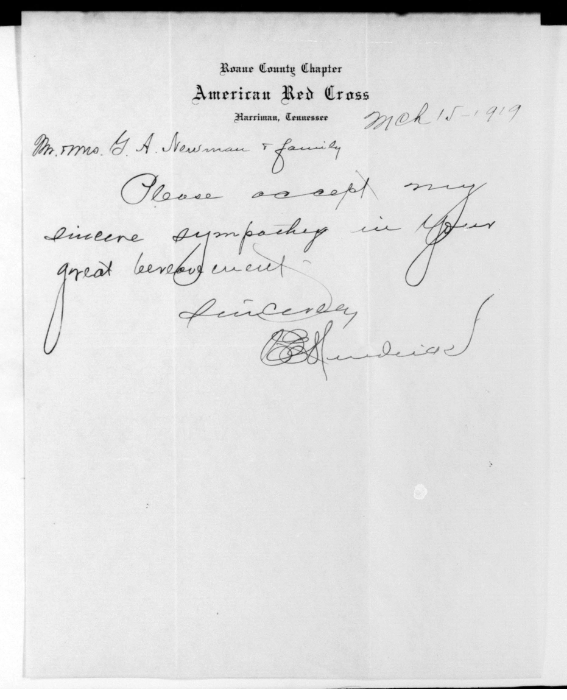 Roane County Chapter
American Red Cross
Harriman, Tennessee
Mch 15-1919
Mr. & Mrs. G. A. Newman & family
Please accept my
sincere sympathy in your
great bereavement -
Sincerely